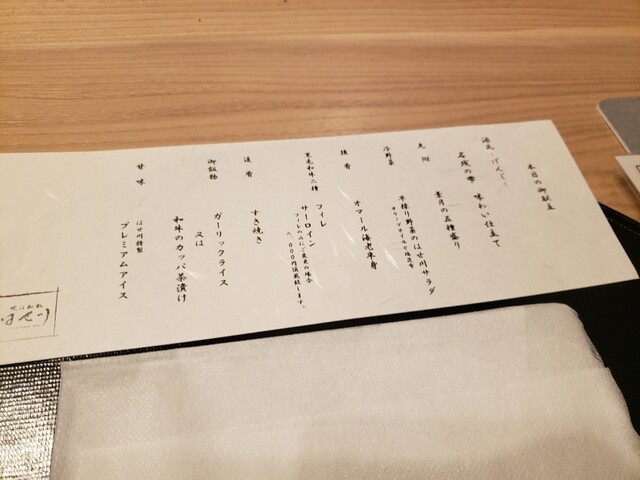 本日の御献立
源氏 〜げんじ〜
名残の雫 味わい仕立て
先附
葉月の五種盛り
冷野菜
早採り野菜のはせ川サラダ
オリーブオイルと塩昆布
強肴
オマール海老半身
黒毛和牛二種
フィレ
サーロイン
フィレのみにご変更の場合
円頂戴致します。
進肴
すき焼き
御飯物
ガーリックライス
又は
和牛のカッパ茶漬け
甘味
はせ川特製
プレミアムアイス
はせ川